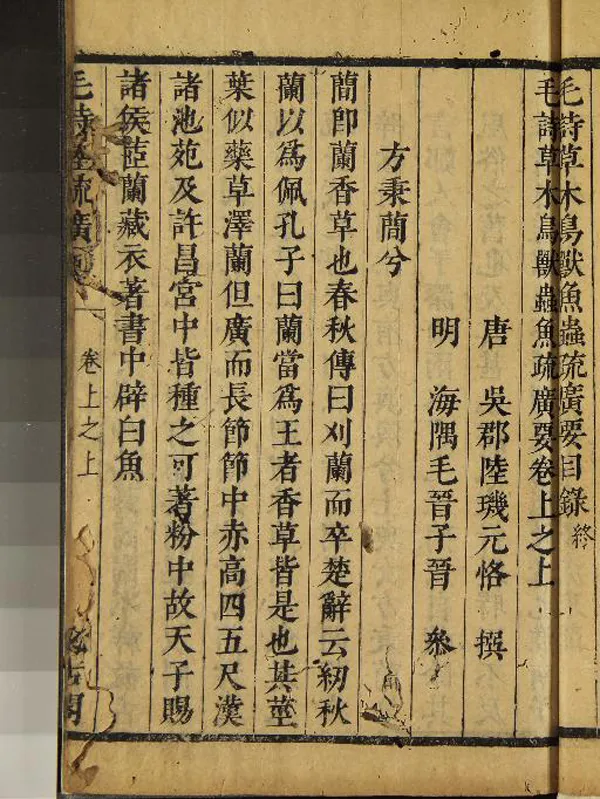 毛詩草木鳥獸魚蟲疏廣要目錄 終
毛詩草木鳥獸蟲魚疏廣要卷上之上
唐 吳郡陸璣元恪 撰
明 海隅毛晉子晉 參
方秉蕑兮
蕑卽蘭香草也春秋傳曰刈蘭而卒楚辭云紉秋
蘭以爲佩孔子曰蘭當爲王者香草皆是也其莖
葉似藥草澤蘭但廣而長節節中赤高四五尺漢
諸池苑及許昌宮中皆種之可著粉中故天子賜
諸侯茝蘭藏衣著書中辟白魚
毛詩 疏廣要
卷上之上